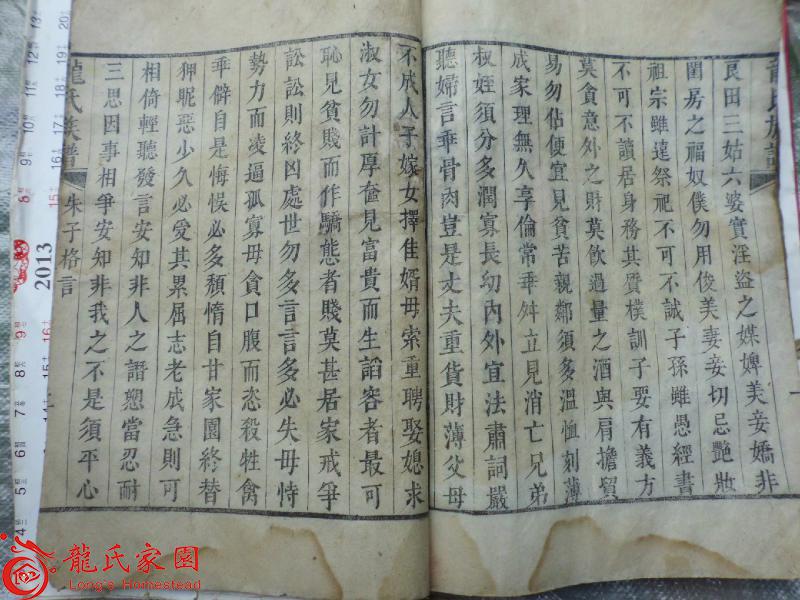 龍氏族譜
良田三姑六婆實淫盜之媒婢美妾嬌非
閨房之福奴僕勿用俊美妻妾切忌艷妝
祖宗雖遠祭祀不可不誠子孫雖愚經書
不可不讀居身務其質樸訓子要有義方
莫貪意外之財莫飲過量之酒與肩擔貿
易勿佔便宜見貧苦親鄰須多溫恤刻薄
成家理無久享倫常乖舛立見消亡兄弟
叔姪須分多潤寡長幼內外宜法肅詞嚴
聽婦言乖骨肉豈是丈夫重貨財薄父母
不成人子嫁女擇佳婿毋索重聘娶媳求
淑女勿計厚奩見富貴而生諂容者最可
恥見貧賤而作驕態者賤莫甚居家戒爭
訟訟則終凶處世勿多言言多必失毋恃
勢力而凌逼孤寡毋貪口腹而恣殺牲禽
乖僻自是悔悞必多頹惰自甘家園終替
狎眤惡少久必受其累屈志老成急則可
相倚輕聽發言安知非人之譖愬當忍耐
三思因事相爭安知非我之不是須平心
龍氏族譜
朱子格言
2013
龍氏家園
Long's Homestead